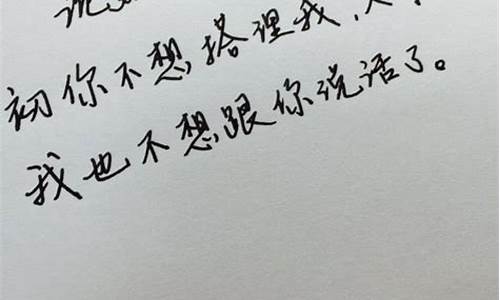 说
初你不想搭理我，
我也不想跟你说话了。